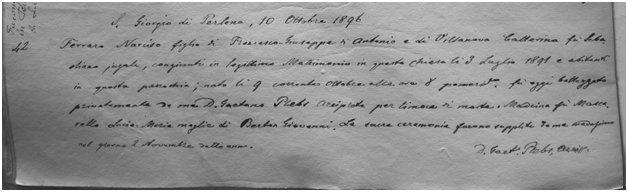 S. Giorgio di Perlena, 10 Ottobre 1896
42 Ferraro Narciso figlio di Francesco Giuseppe di Antonio e di Villanova Catterina fu Seba
stiano jugali, congiunti in legittimo Matrimonio in questa chiesa li 3 Luglio 1891 e abitanti
in questa parrocchia; nato li 9 corrente Ottobre alle ore 8 pomerd. fu oggi battezzato
privatamente da me D. Gaetano Plebs Arciprete per timore di morte. Madrina fu Mazza
Lucia Maria moglie di Giovanni. Le sacre ceremonie furono supplite da me medesimo
nel giorno 2 Novembre dello anno.
D. Gaet. Plebs, Arcip.